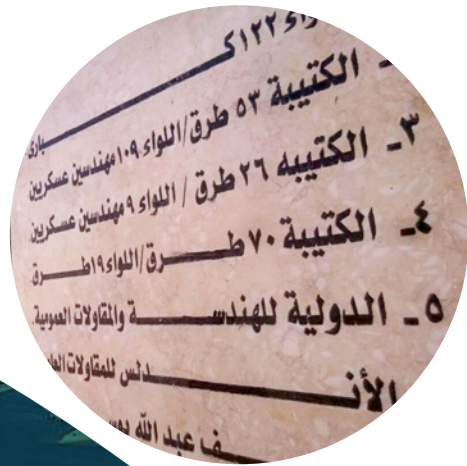 ١٢٢ك بارى
- الكتيبة ٥٣ طرق/اللواء ١٠٩مهندسين عسكريين
٣- الكتيبه ٢٦ طرق / اللواء ٩ مهندسين عسكريين
٤- الكتيبة ٧٠ طرق/اللواء ١٩طرق
٥- الدولية للهندسة والمقاولات العمومية.
الأندلس للمقاولات
ف عبد الله